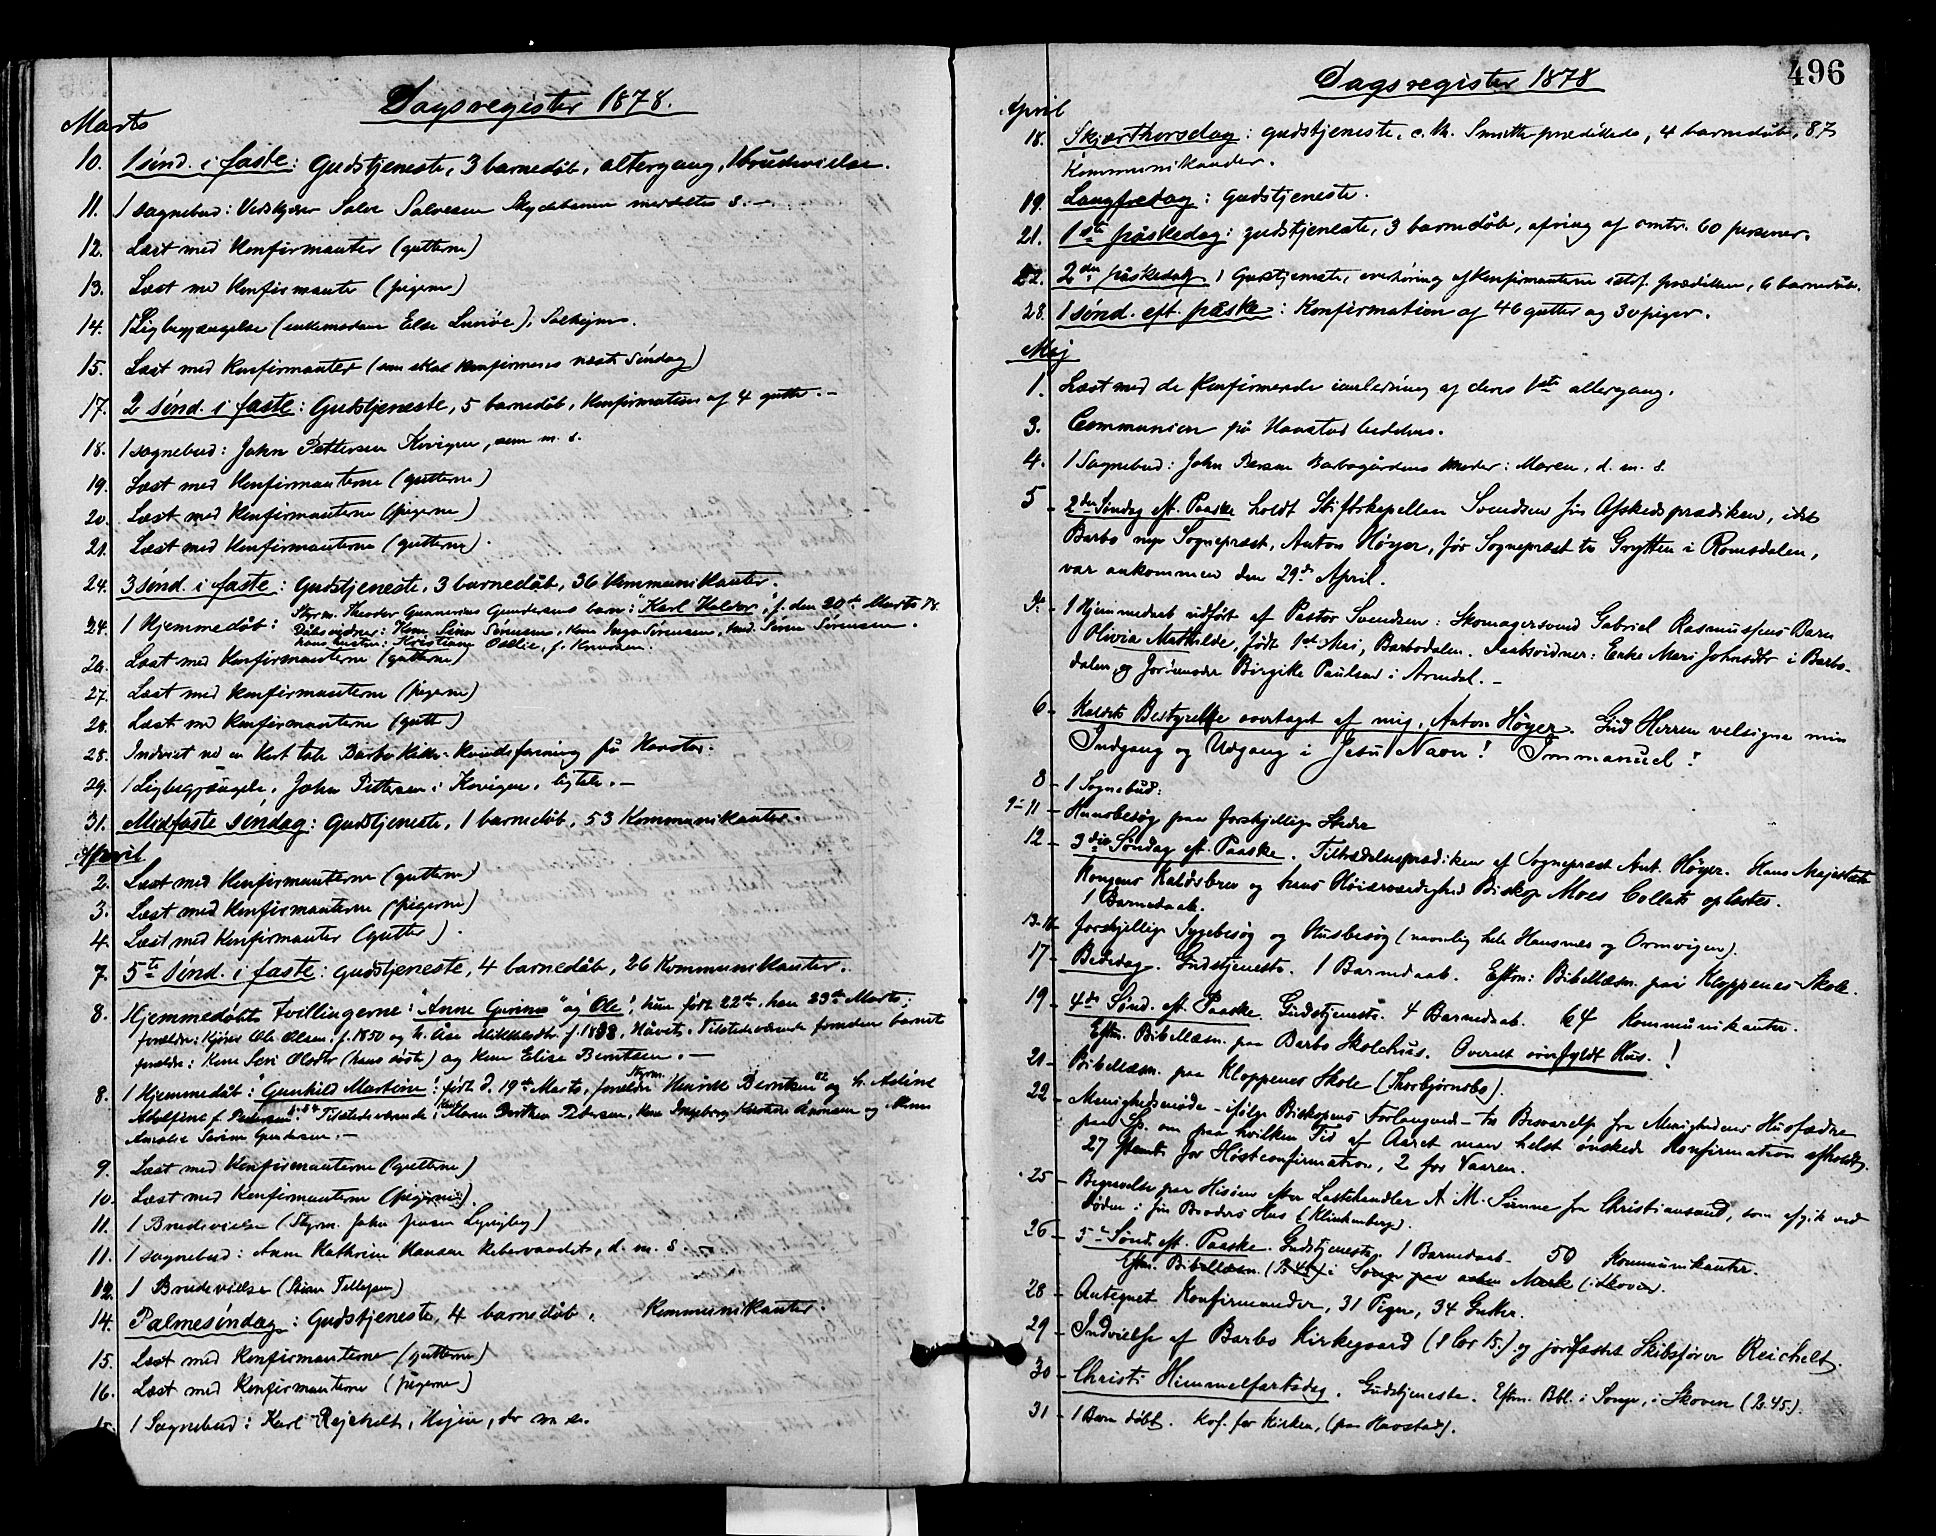 Dagsregister 1878.
Marts
10. 1 sønd. i faste: Gudstjeneste, 3 barnedøb, altergang, 1 brudevielse.
11. 1 sognebud: Salve Salvesen
12. Læst med Konfirmanter (gutterne)
13. Læst med Konfirmanter (pigerne)
14. 1 Ligbegjængelse (enkemadam Else
15. Læst med Konfirmanter (som skal konfirmeres næste Søndag)
17. 2 sønd. i faste: Gudstjeneste, 5 barnedøb, Konfirmation af 4 gutter.-
18. 1 sognebud: John Pettersen Kovigen, som m. s.
19. Læst med Konfirmanterne (gutterne)
20. Læst med Konfirmanterne (pigerne)
21. Læst med Konfirmanterne (gutterne).
24. 3 sønd. i faste: Gudstjeneste, 3 barnedøb, 36 Kommunikanter.
24. 1 Hjemmedøbt: Styrm. Theodor Gunnerius Gundersens barn: "Karl Haldor", f. den 20de Marts 78.
Dåbsvidner: Kone Sina Sørensen, Kone Inga Sørensen, Søren Sørensen.
26. Læst med Konfirmanterne (gutterne)
27. Læst med Konfirmanterne (pigerne)
28. Læst med Konfirmanterne (gutt)
28. Indviet ved en Kort tale Barbo Kvindeforening på Havstad.
29. 1 Ligbegjængelse, John Pettersen i Kovigen, ligtale.-
31. Midfaste søndag: Gudstjeneste, 1 barnedøb, 53 Kommunikanter.
April
2. Læst med Konfirmanterne (gutterne)
3. Læst med Konfirmanterne (pigerne)
4. Læst med Konfirmanter (gutter).
7. 5te sønd. i faste: gudstjeneste, 4 barnedøb, 26 Kommunikanter.
8. Hjemmedøbte Tvillingerne: "Anne Gurine" og "Ole", hun født 22de, han 23de Marts;
forældre: Ole Olsen f. 1850 og h. Åse f. Tilstedeværende foruden barnets
forældre: Kone Olsdtr (hans søster) og Kone Elise Berntsen.-
8. 1 Hjemmedøbt: Gunhild Martine, født d. 19de Marts, forældre Styrm. Henrik Berntsen og h. Aline
Adolfine f. Pedersen Tilstedeværende: Kone Maren Pedersen, Kone Ingeborg
Amalie
9. Læst med Konfirmanterne (gutterne)
10. Læst med Konfirmanterne (pigerne).
11. 1 Brudevielse (Styrm. John
11. 1 sognebud: Anne Kathrine Hansen d. m. s.
12. 1 Brudevielse (
14. Palmesøndag: Gudstjeneste, 4 barnedøb, Kommunikanter.
15. Læst med Konfirmanterne (gutterne)
16. Læst med Konfirmanterne (pigerne)
1 Sognebud: Karl Reichelt,
496
Dagsregister 1878
April
18. Skjærthorsdag: gudstjeneste, c. Th. Smith prædikede, 4 barnedøb, 87
Kommunikander.
19. Langfredag: gudstjeneste.
21. 1ste påskedag: gudstjeneste, 3 barnedøb, ofring af omtr. 60 personer.
22. 2den påskedag: Gudstjeneste, overhøring af Konfirmanterne istdf. prædiken, 6 barnedøb.
28. 1 sønd. eft. påske: Konfirmation af 46 gutter og 30 piger.
Maj
1. Læst med de Konfirmerede i anledning af deres 1ste altergang.
3. Communion på Havstad bedehus.
4. 1 Sognebud: John Barbogårdens Moder: Maren, d. m. s.
5 - 2den Søndag eft. Paaske holdt Stiftskapellan Svendsen sin Afskedsprædiken, idet
Barbo nye Sognepræst, Anton Høyer, før Sognepræst til Grytten i Romsdalen,
var ankommen den 29de April.
1 Hjemmedaab udført af Pastor Svendsen: Skomagersvend Gabriel Rasmussens Barn
Olivia Mathilde, født 1ste Mai, Barbodalen. Daabsvidner: Enke Mari Johnsdtr i Barbo-
dalen, og Jordmoder Birgitte Paulsen i Arendal.-
6 - Kaldets Bestyrelse overtaget af mig, Anton Høyer. Gud Herren velsigne min
Indgang og Udgang i Jesu Navn! Immanuel!
8 - 1 Sognebud:
9-11 - Huusbesøg paa forskjellige Steder
12 - 3die Søndag eft. Paaske. Tiltrædelsesprædiken af Sognepræst Ant. Høyer. Hans Majestæts
Kongens Kaldsbrev og hans Høiærværdighed Biskop Moes Collats oplæstes.
1 Barnedaab.
13-16 - forskjellige Sygebesøg og Husbesøg (navnlig hele Hausnes og Ormvigen).
17 - Bededag. Gudstjeneste. 1 Barnedaab. Eftm: Bibellæsn. paa Kloppenes Skole.
19 - 4de Sønd. eft. Paaske. Gudstjeneste. 4 Barnedaab. 64 Kommunikanter.
Eftm. Bibellæsn. paa Barbo Skolehus. Overalt overfyldt Hus.!
21 - Bibellæsn. paa Kloppenes Skole (Thorbjørnsbo).
22 - Menighedsmøde - ifølge Biskopens Forlangend - til Besvarelse fra Menighedens Husfædre
paa Sp. om paa hvilken Tid af Aaret man helst ønskede Konfirmation afholdt,
27 stemte for Høstconfirmation, 2 for Vaaren.
25 - Begravelse paa Hisøen efter A. M. Sinne fra Christianssand, som afgik ved
Døden i sin Broders Hus (Klinkenberg).
26 - 5te Sønd. eft. Paaske. Gudstjeneste. 1 Barnedaab. 50 Kommunikanter.
Eftm. Bibellæsn. i Songe paa aaben Mark (i Skoven.
28 - Antegnet Konfirmander, 31 Piger, 34 Gutter.
29 - Indvielse af Barbo Kirkegaard (1 Cor 15.) og jordfæstet Skibsfører Reichelt.
30 - Christi Himmelfartsdag. Gudstjeneste. Eftm. Bbl. i Songe, i Skoven (B. 45.).
31 - 1 Barn døbt. Kof. for Kirken, (paa Havstad).